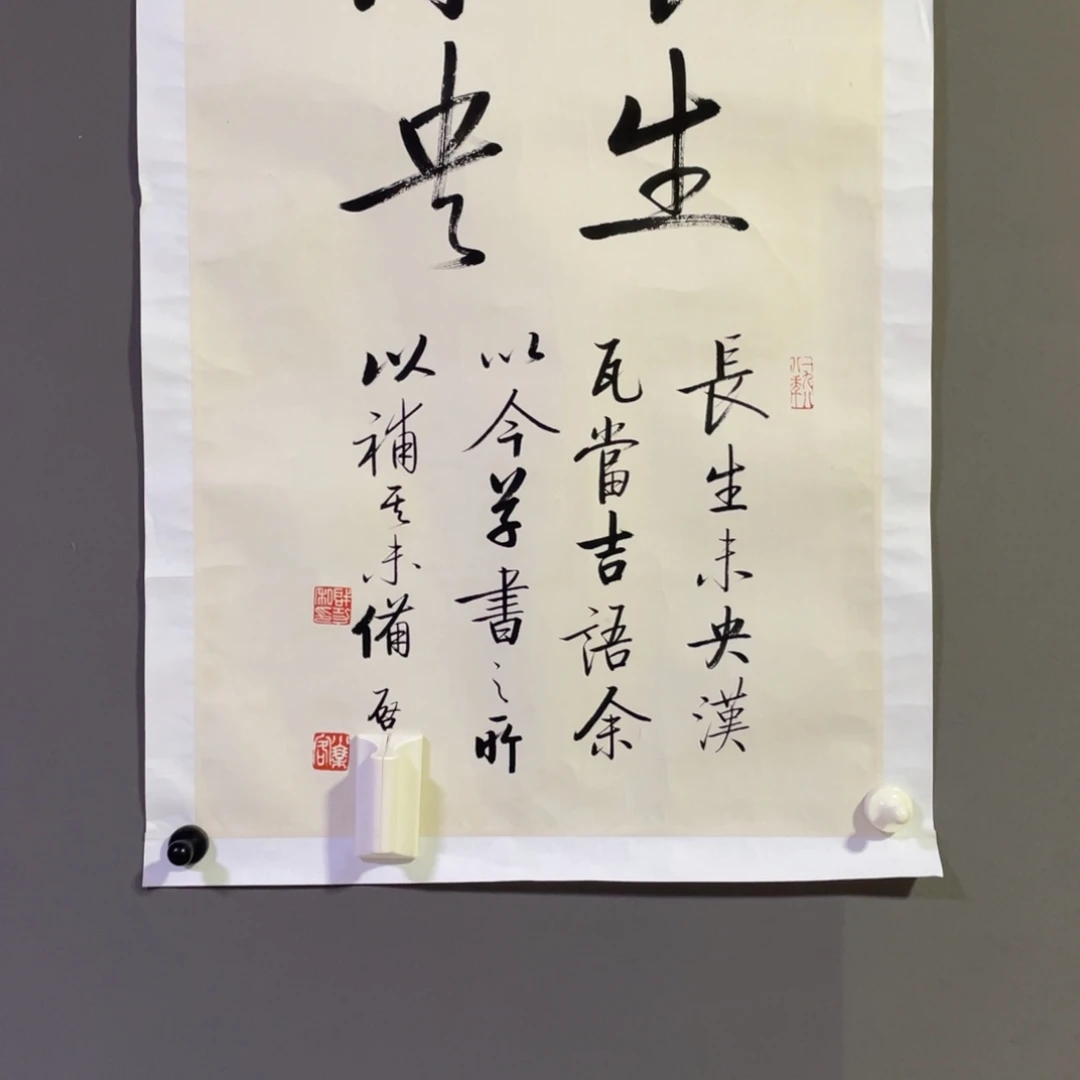 生
央
長生未央漢
瓦當吉語余
以今草書之所
以補其未備 啓